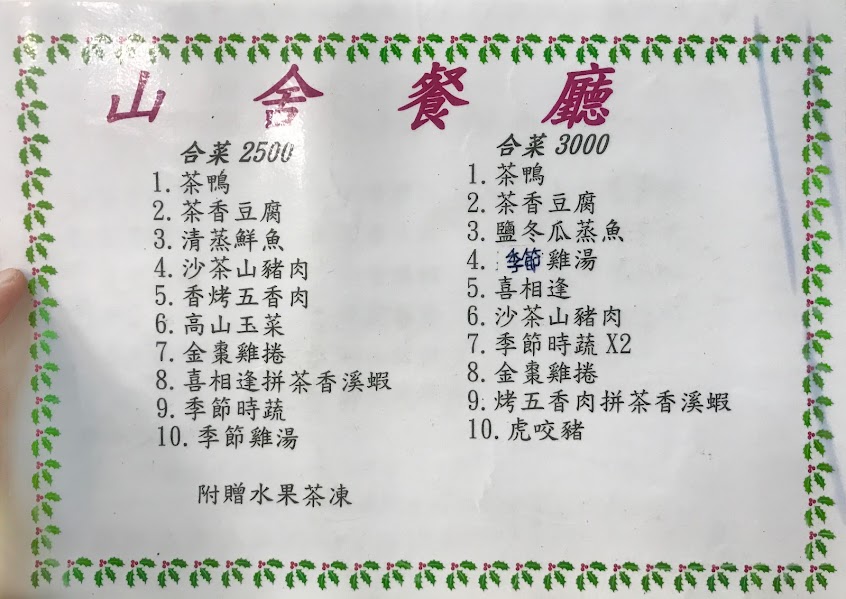 山舍餐廳
合菜 2500
1. 茶鴨
2. 茶香豆腐
3. 清蒸鮮魚
4. 沙茶山豬肉
5. 香烤五香肉
6. 高山玉菜
7. 金棗雞捲
8. 喜相逢拼茶香溪蝦
9. 季節時蔬
10. 季節雞湯
附贈水果茶凍
合菜 3000
1. 茶鴨
2. 茶香豆腐
3. 鹽冬瓜蒸魚
4. 季節雞湯
5. 喜相逢
6. 沙茶山豬肉
7. 季節時蔬 X2
8. 金棗雞捲
9. 烤五香肉拼茶香溪蝦
10. 虎咬豬